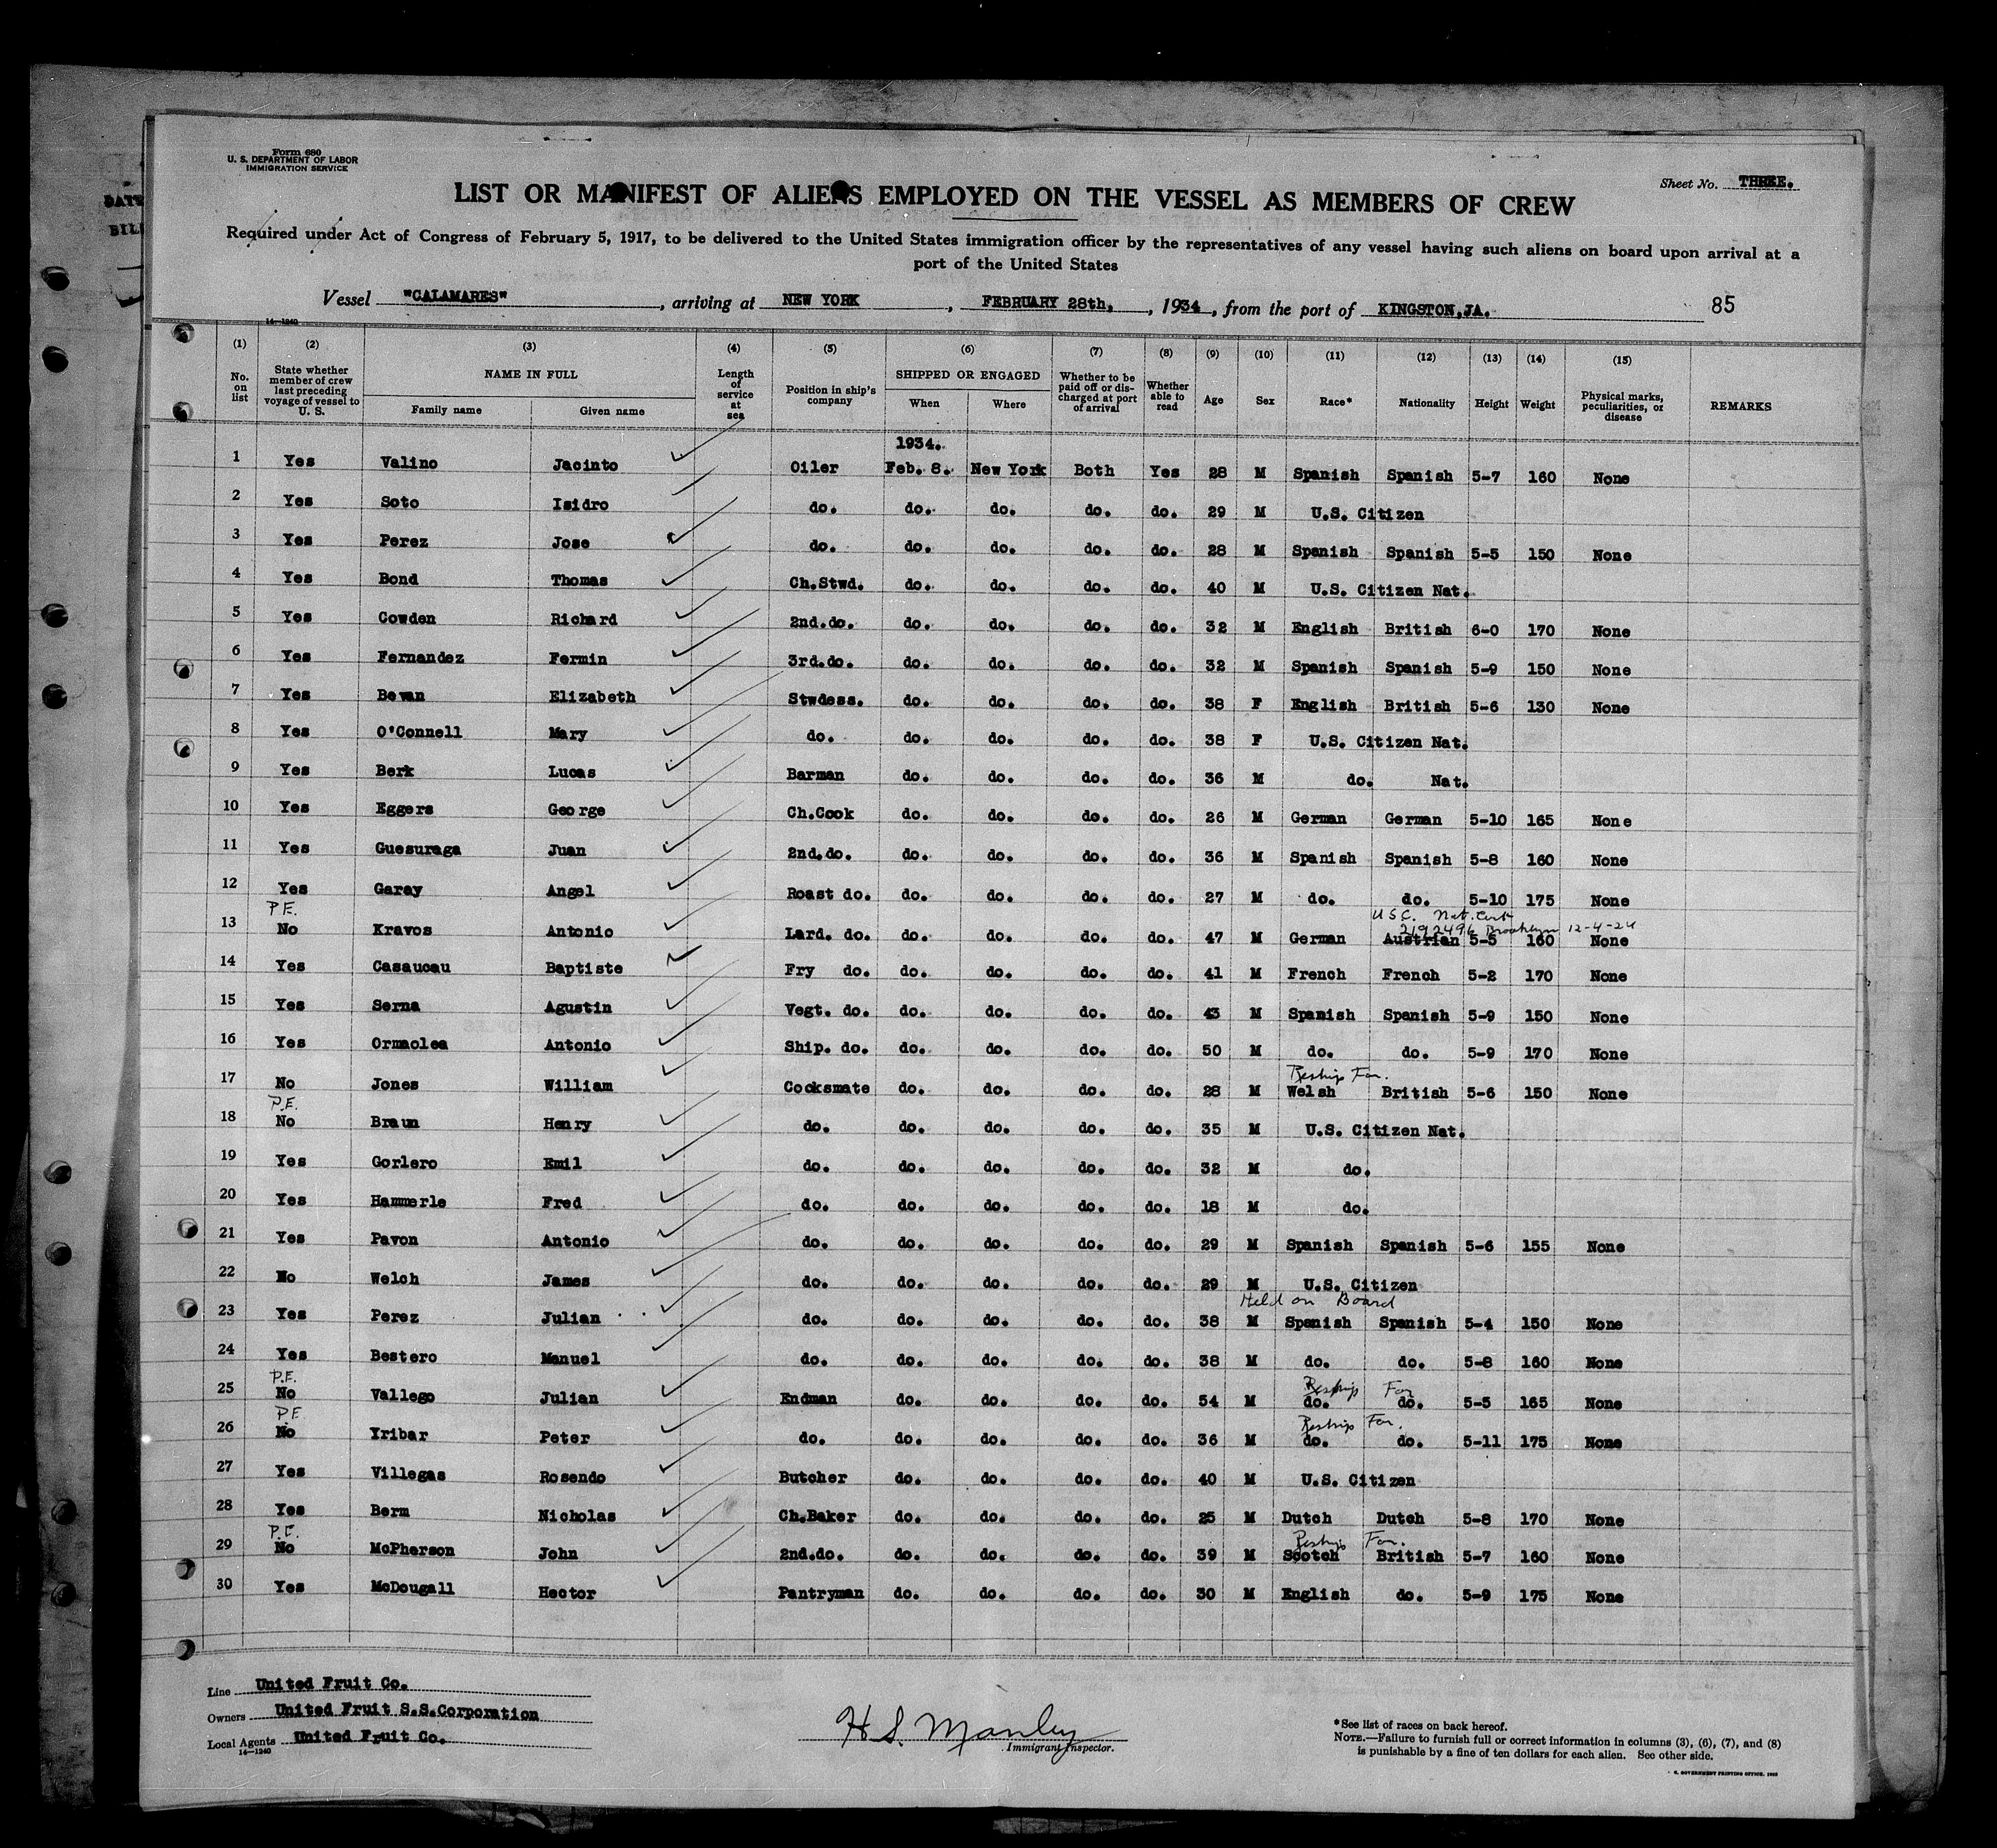 Form 680
U. S. DEPARTMENT OF LABOR
IMMIGRATION SERVICE
Sheet No. THREE.
LIST OR MANIFEST OF ALIENS EMPLOYED ON THE VESSEL AS MEMBERS OF CREW
Required under Act of Congress of February 5, 1917, to be delivered to the United States immigration officer by the representatives of any vessel having such aliens on board upon arrival at a
port of the United States
Vessel "CALAMARES", arriving at NEW YORK, FEBRUARY 28th, 1934, from the port of KINGSTON,JA. 85
14—1240
(1) (2) (3) (4) (5) (6) (7) (8) (9) (10) (11) (12) (13) (14) (15)
No. on list State whether member of crew last preceding voyage of vessel to U. S. NAME IN FULL Family name Given name Length of service at sea Position in ship's company SHIPPED OR ENGAGED When Where Whether to be paid off or discharged at port of arrival Whether able to read Age Sex Race* Nationality Height Weight Physical marks, peculiarities, or disease REMARKS
1934.
1 Yes Valino Jacinto Oiler Feb. 8. New York Both Yes 28 M Spanish Spanish 5-7 160 None
2 Yes Soto Isidro do. do. do. do. do. 29 M U.S. Citizen
3 Yes Perez Jose do. do. do. do. do. 28 M Spanish Spanish 5-5 150 None
4 Yes Bond Thomas Ch.Stwd. do. do. do. do. 40 M U.S. Citizen Nat.
5 Yes Cowden Richard 2nd.do. do. do. do. do. 32 M English British 6-0 170 None
6 Yes Fernandez Fermin 3rd.do. do. do. do. do. 32 M Spanish Spanish 5-9 150 None
7 Yes Bevan Elizabeth Stwdess. do. do. do. do. 38 F English British 5-6 130 None
8 Yes O'Connell Mary do. do. do. do. do. 38 F U.S. Citizen Nat.
9 Yes Berk Lucas Barman do. do. do. do. 36 M do. Nat.
10 Yes Eggers George Ch.Cook do. do. do. do. 26 M German German 5-10 165 None
11 Yes Guesuraga Juan 2nd.do. do. do. do. do. 36 M Spanish Spanish 5-8 160 None
12 Yes Garay Angel Roast do. do. do. do. do. 27 M do. do. 5-10 175 None
P.E. USC. Nat. Cert
2192496 Brooklyn 12-4-24
13 No Kravos Antonio Lard. do. do. do. do. do. 47 M German Austrian 5-5 160 None
14 Yes Casaucau Baptiste Fry do. do. do. do. do. 41 M French French 5-2 170 None
15 Yes Serna Agustin Vegt. do. do. do. do. do. 43 M Spanish Spanish 5-9 150 None
16 Yes Ormaolea Antonio Ship. do. do. do. do. do. 50 M do. do. 5-9 170 None
Reship For.
17 No Jones William Cocksmate do. do. do. do. 28 M Welsh British 5-6 150 None
P.E.
18 No Braun Henry do. do. do. do. do. 35 M U.S. Citizen Nat.
19 Yes Gorlero Emil do. do. do. do. do. 32 M do.
20 Yes Hammerle Fred do. do. do. do. do. 18 M do.
21 Yes Pavon Antonio do. do. do. do. do. 29 M Spanish Spanish 5-6 155 None
22 No Welch James do. do. do. do. do. 29 M U.S. Citizen
Held on Board
23 Yes Perez Julian do. do. do. do. do. 38 M Spanish Spanish 5-4 150 None
24 Yes Bestero Manuel do. do. do. do. do. 38 M do. do. 5-8 160 None
P.E. Reship For
25 No Vallego Julian Endman do. do. do. do. 54 M do. do. 5-5 165 None
P.E. Reship For.
26 No Yribar Peter do. do. do. do. do. 36 M do. do. 5-11 175 None
27 Yes Villegas Rosendo Butcher do. do. do. do. 40 M U.S. Citizen
28 Yes Berm Nicholas Ch.Baker do. do. do. do. 25 M Dutch Dutch 5-8 170 None
P.E. Reship For.
29 No McPherson John 2nd.do. do. do. do. do. 39 M Scotch British 5-7 160 None
30 Yes McDougall Hector Pantryman do. do. do. do. 30 M English do. 5-9 175 None
Line United Fruit Co.
Owners United Fruit S.S.Corporation
Local Agents United Fruit Co.
14—1240
H. S. Manley
Immigrant Inspector.
*See list of races on back hereof.
NOTE.—Failure to furnish full or correct information in columns (3), (6), (7), and (8)
is punishable by a fine of ten dollars for each alien. See other side.